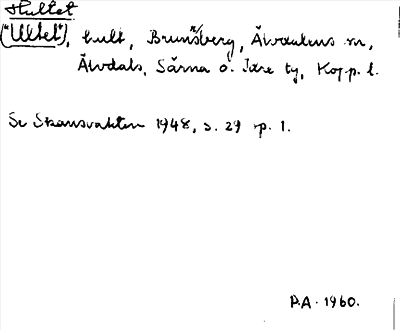 Hultet
("Ultet"), hult, Brunnsberg, Älvdalens sn,
Älvdals, Särna o. Idre tg, Kopp. l.
Se Skansvakten 1948, s. 29 sp. 1.
P.A. 1960.